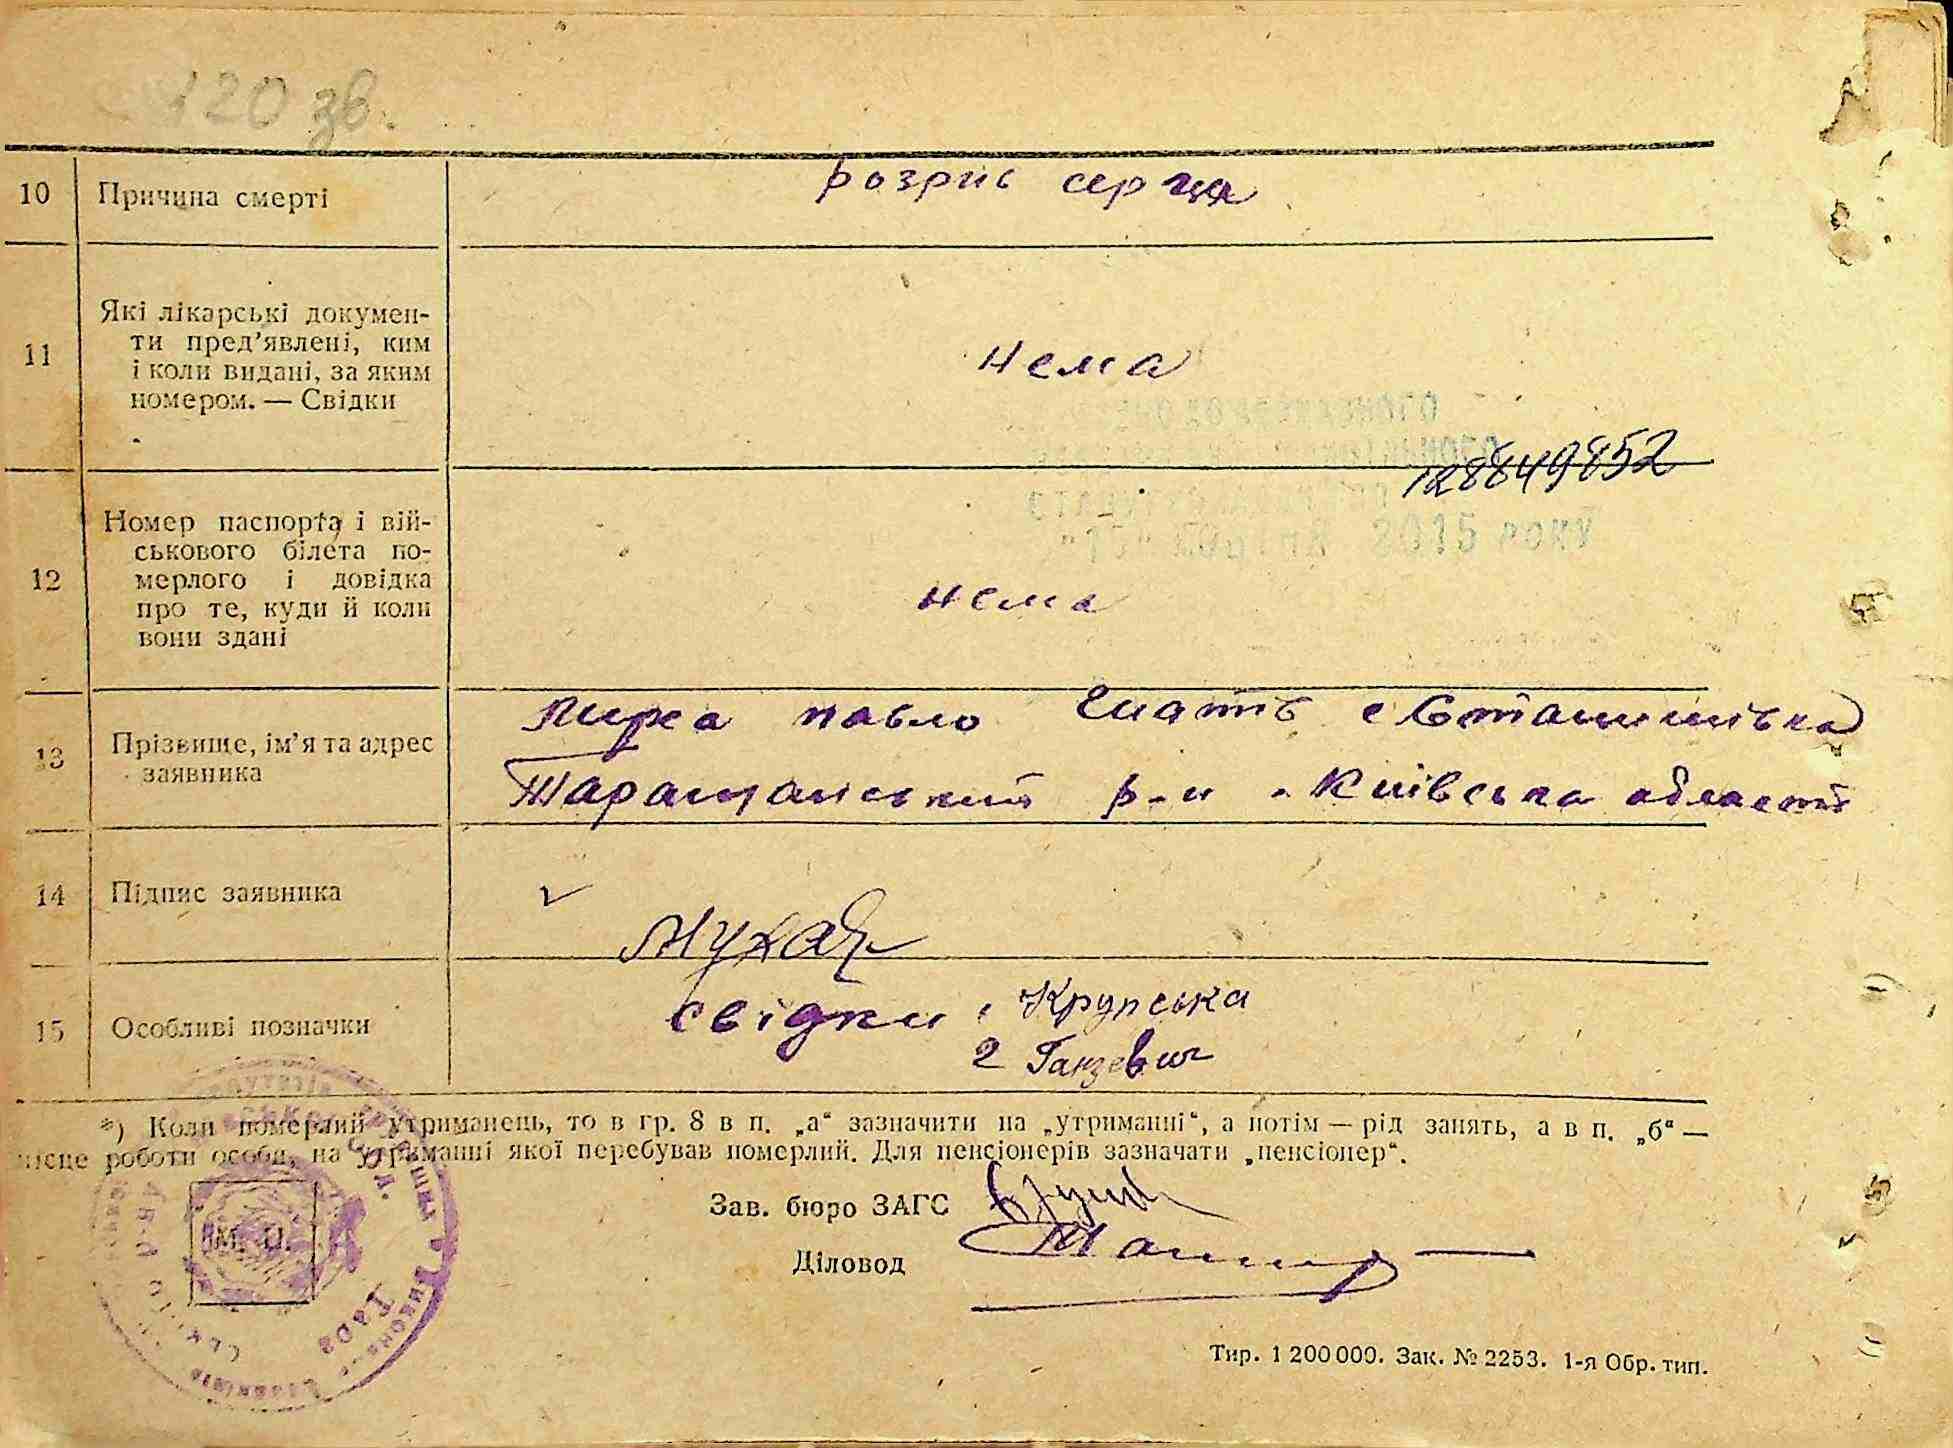 120 зв.
10 Причина смерті розрив серця
11 Які лікарські докумен-
ти пред’явлені, ким
і коли видані, за яким
номером. — Свідки
нема
128849852
12 Номер паспорта і вій-
ськового білета по-
мерлого і довідка
про те, куди й коли
вони здані
нема
2015 року
13 Прізвище, ім’я та адрес
заявника
павло Гнатів с Станишівка
Таращанський р-н. Київська області
14 Підпис заявника
15 Особливі позначки
свідки 1 Крупська
2 Ганзевич
*) Коли померлий утриманець, то в гр. 8 в п. „а“ зазначити на „утриманні“, а потім — рід занять, а в п. „б“ —
місце роботи особи, на утриманні якої перебував померлий. Для пенсіонерів зазначати „пенсіонер“.
М. П.
Зав. бюро ЗАГС
Діловод
Тир. 1 200 000. Зак. № 2253. 1-я Обр. тип.